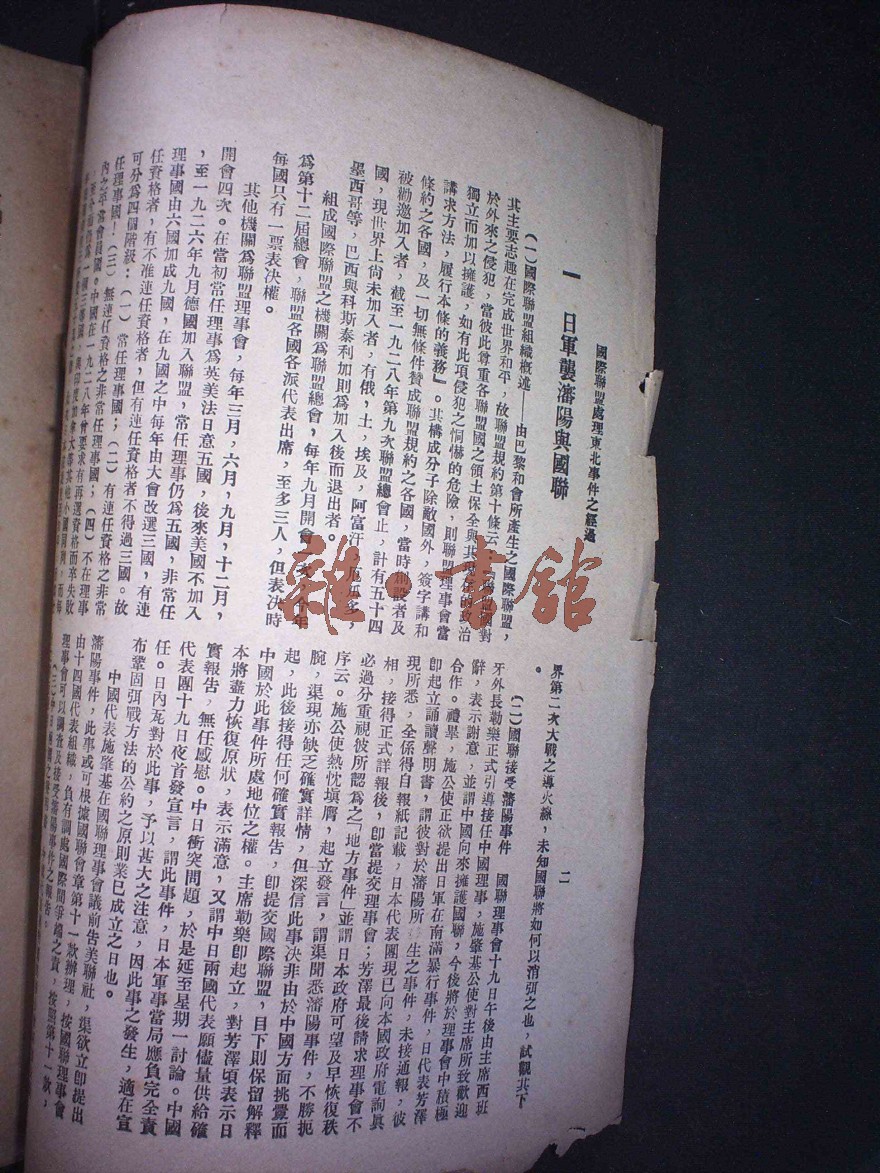 國際聯盟處理東北事件之經過
二
一 日軍襲瀋陽與國聯
(一)國際聯盟組織概述——由巴黎和會所產生之國際聯盟,
其主要志趣在完成世界和平,故聯盟規約第十條云:
於外來之侵犯,當彼此尊重各聯盟國之領土保全與其現在的政治
獨立而加以擁護,如有此項侵犯之恫嚇的危險,則聯盟理事會當
講求方法,履行本條的義務』。其構成分子除敵國外,簽字講和
條約之各國,及一切無條件贊成聯盟規約之各國,當時創設者及
被勸邀加入者,截至一九二八年第九次聯盟總會止,計有五十四
國,現世界上尚未加入者,有俄,土,埃及,阿富汗,厄瓜多,
墨西哥等,巴西與科斯泰利加則爲加入後而退出者。
組成國際聯盟之機關爲聯盟總會,每年九月開會一次,今年
爲第十二屆總會,聯盟各國各派代表出席,至多三人,但表決時
每國只有一票表決權。
其他機關爲聯盟理事會,每年三月,六月,九月,十二月,
開會四次。在當初常任理事爲英美法日意五國,後來美國不加入
,至一九二六年九月德國加入聯盟,常任理事仍爲五國,非常任
理事國由六國加成九國,在九國之中每年由大會改選三國,有連
任資格者,有不准連任資格者,但有連任資格者不得過三國。故
可分爲四個階級:(一)常任理事國;(二)有連任資格之非常
任理事國!(三)無連任資格之非常任理事國;(四)不在理事
內之平常會員國。中國在一九二八年會要求有再選資格而卒失敗
界第二次大戰之導火線,未知國聯將如何以消弭之也,試觀其下
。
(二)國聯接受瀋陽事件 國聯理事會十九日午後由主席西班
牙外長勒樂正式引導接任中國理事,施肇基公使對主席所致歡迎
辭,表示謝意,並謂中國向來擁護國聯,今後將於理事會中積極
合作。禮畢,施公使正欲提出日軍在南滿暴行事件,日代表芳澤
即起立誦讀聲明書,謂彼對於瀋陽所 生之事件,未接通報,彼
現所悉,全係得自報紙記載,日本代表團現已向本國政府電詢眞
相,接得正式詳報後,即當提交理事會;芳澤最後請求理事會不
必過分重視彼所認爲之「地方事件」並謂日本政府可望及早恢復秩
序云。施公使熱忱填膺,起立發言,謂渠聞悉瀋陽事件,不勝扼
腕,渠現亦缺乏確實詳情,但深信此事決非由於中國方面挑釁而
起,此後接得任何確實報告,即提交國際聯盟,目下則保留解釋
中國於此事件所處地位之權。主席勒樂即起立,對芳澤頃表示日
本將盡力恢復原狀,表示滿意,又謂中日兩國代表願儘量供給確
實報告,無任感慰。中日衝突問題,於是延至星期一討論。中國
代表團十九日夜首發宣言,謂此事件,日本軍事當局應負完全責
任。日內瓦對於此事,予以甚大之注意,因此事之發生,適在宣
布鞏固弭戰方法的公約之原則業已成立之日也。
中國代表施肇基在國聯理事會議前告美聯社,渠欲立即提出
瀋陽事件,此事或可根據國聯會章第十一款辦理,按國聯理事會
由十四國代表組織,負有調處國際間爭端之責,按照第十一款,
理事會可以調查及接受瀋陽事件之報告。
雜·書館